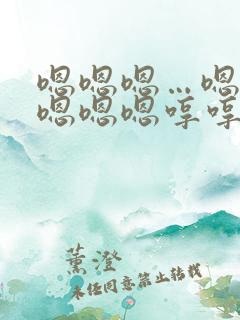 嗯嗯嗯…嗯
嗯嗯嗯哼哼
薰澄
未经同意禁止转载